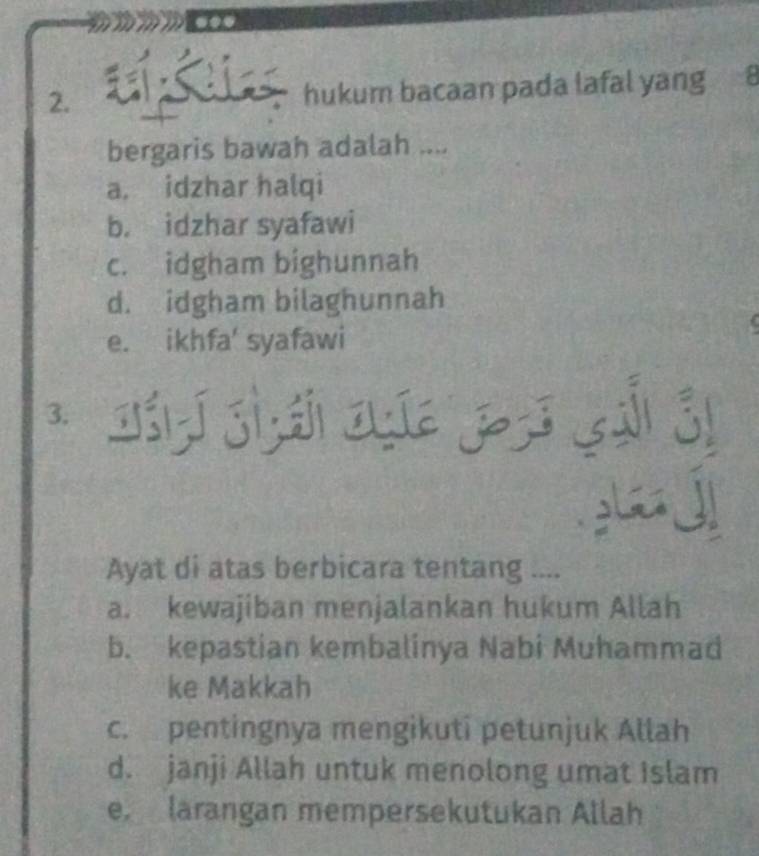 2. جَعَلْنٰكُمْ اُمَّةً hukum bacaan pada lafal yang 8
bergaris bawah adalah ....
a. idzhar halqi
b. idzhar syafawi
c. idgham bighunnah
d. idgham bilaghunnah
e. ikhfa' syafawi
3. إِنَّ الَّذِي فَرَضَ عَلَيْكَ الْقُرْاٰنَ لَرَادُّكَ
إِلَى مَعَادٍ .
Ayat di atas berbicara tentang ....
a. kewajiban menjalankan hukum Allah
b. kepastian kembalinya Nabi Muhammad
ke Makkah
c. pentingnya mengikuti petunjuk Allah
d. janji Allah untuk menolong umat Islam
e. larangan mempersekutukan Allah